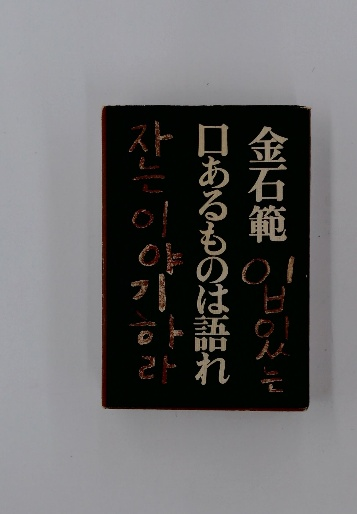 金石範
口あるものは語れ
입있는
자는이야기하라